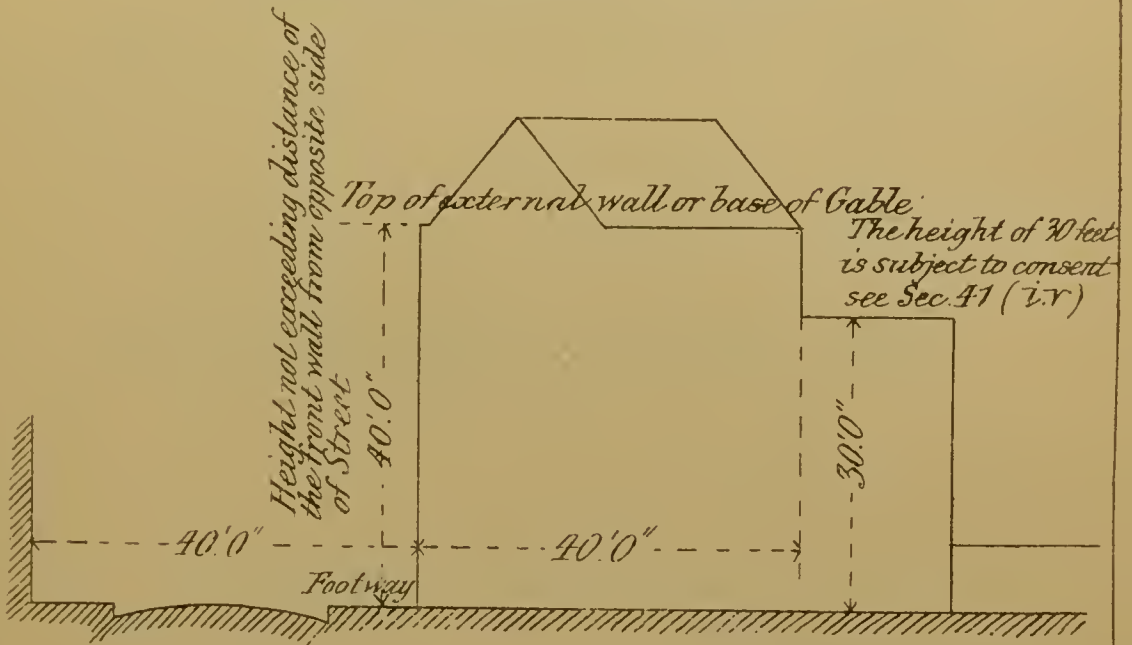 Height not exceeding distance of
the front wall from opposite side
of Street
Top of external wall or base of Gable
The height of 30 feet
is subject to consent
see Sec. 41 (i.v)
40'.0"
30'.0"
40'.0"
40'.0"
Footway